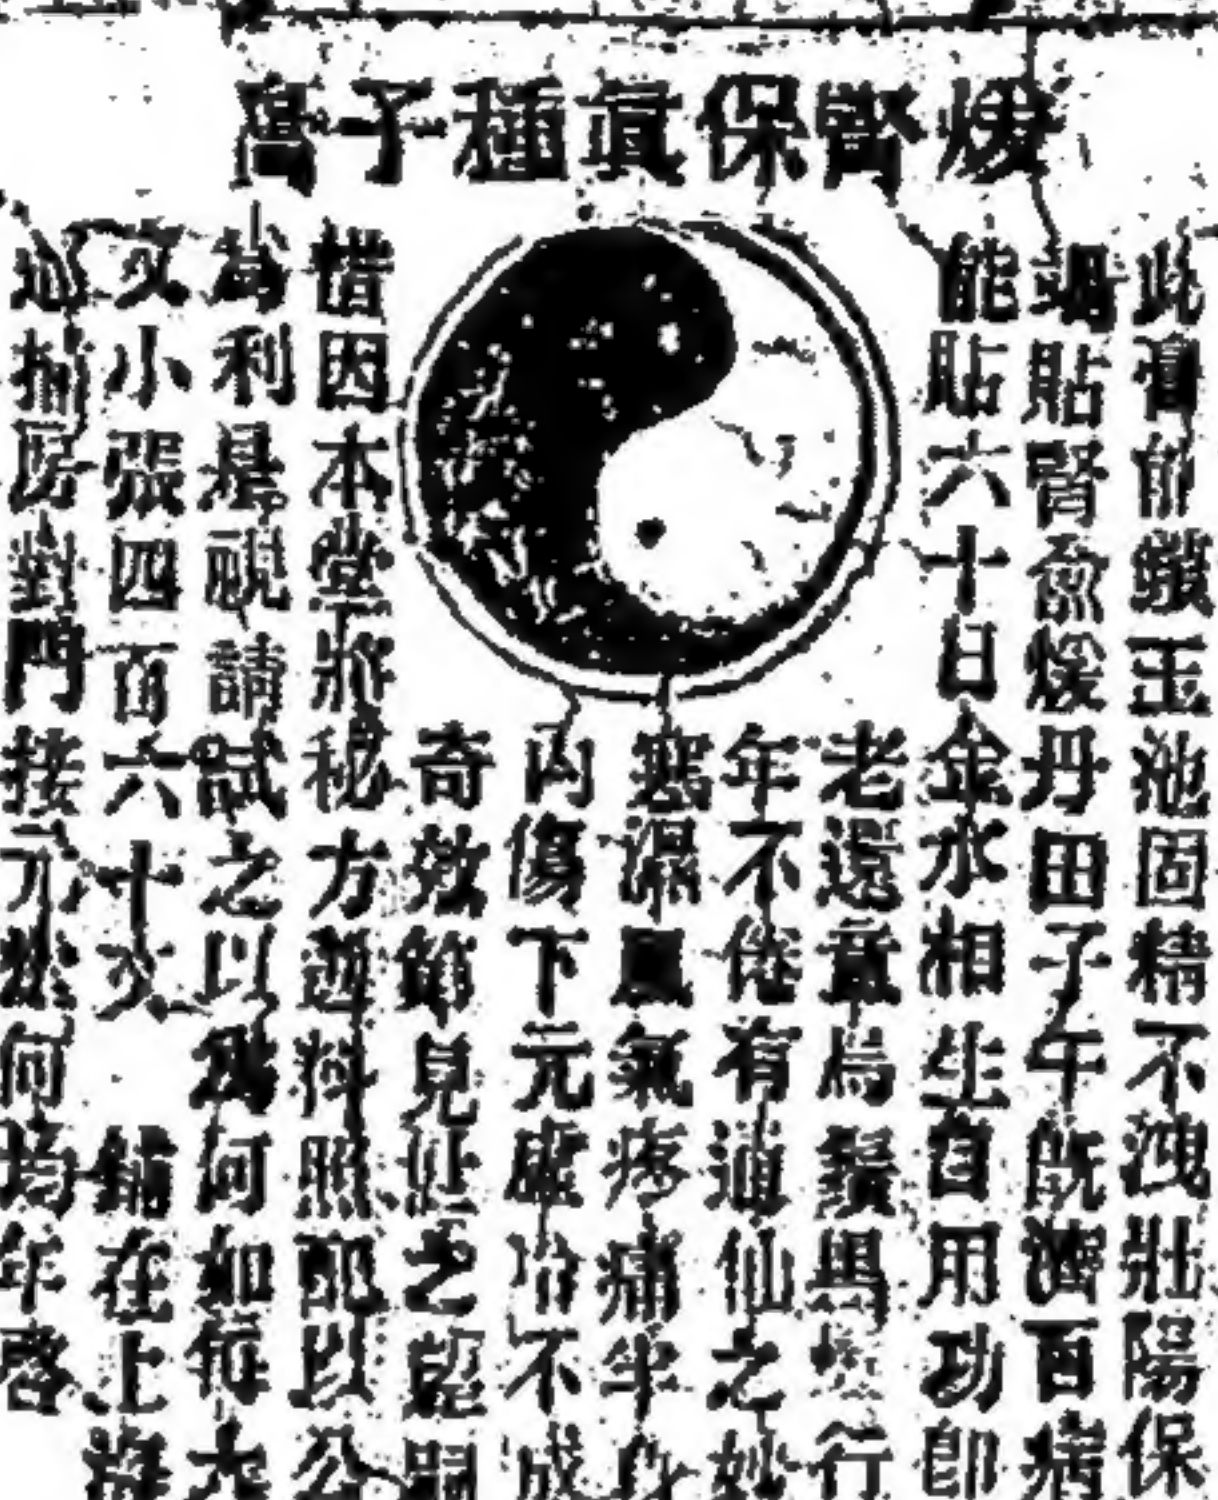 煖腎保眞種子膏
此膏能鎖玉池固精不洩壯陽保
貼腎俞煖丹田子午旣濟百病
能貼六十日金水相生自用功卽
老還童烏鬚黑 行
年不倦有通仙之妙
寒濕風氣疼痛半身
內傷下元虛冷不成
奇效節見 之 嗣
惜因本堂將秘方 料照配以公
爲利是視請試之以爲何如每大
文小張四百六十文 鋪在上海
房對門接 何均年啓